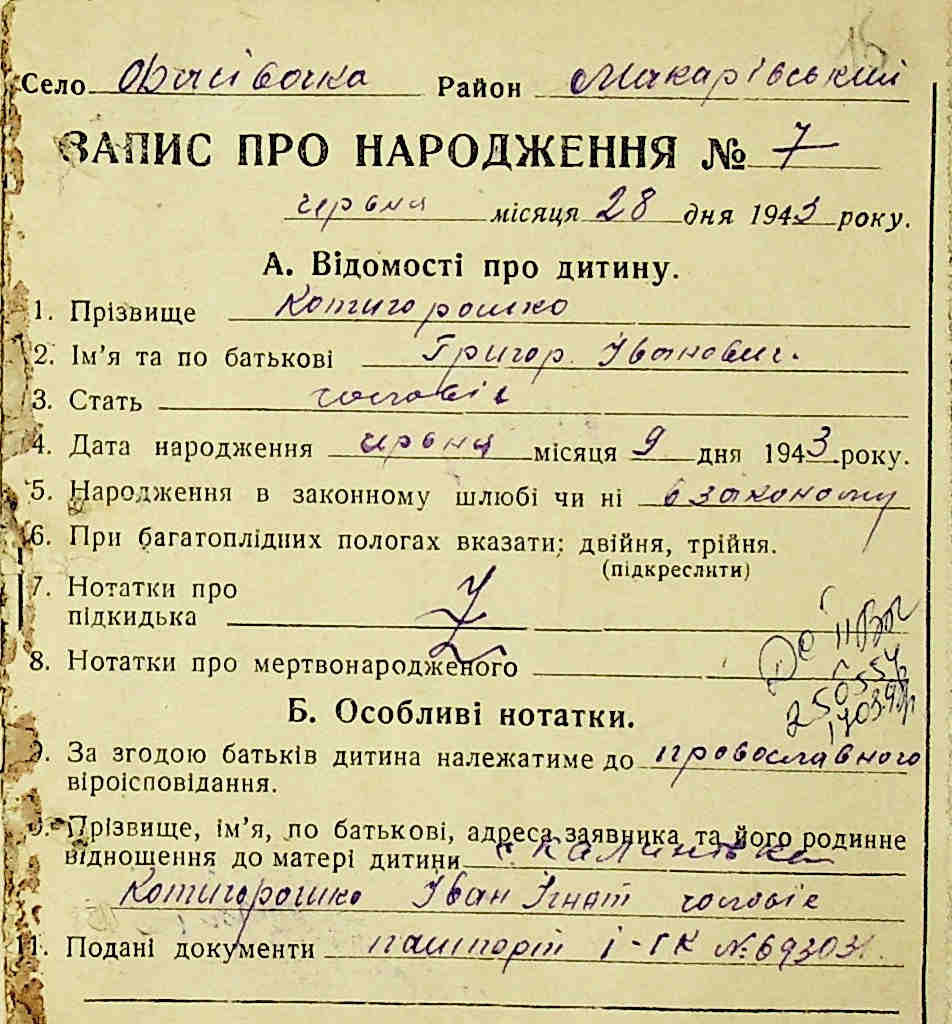 15
Село Фасівочка Район Макарівський
ЗАПИС ПРО НАРОДЖЕННЯ № 7
червня місяця 28 дня 1943 року.
А. Відомості про дитину.
1. Прізвище Котигорошко
2. Ім’я та по батькові Григор. Іванович.
3. Стать чоловік
4. Дата народження червня місяця 9 дня 1943 року.
5. Народження в законному шлюбі чи ні в законому
6. При багатоплідних пологах вказати: двійня, трійня.
(підкреслити)
7. Нотатки про
підкидька
8. Нотатки про мертвонародженого
Б. Особливі нотатки.
9. За згодою батьків дитина належатиме до провославного
віроісповідання.
Прізвище, ім’я, по батькові, адреса заявника та його родинне
відношення до матері дитини
Котигорошко Іван Ігнат чоловік
11. Подані документи пашпорт І-ГК №